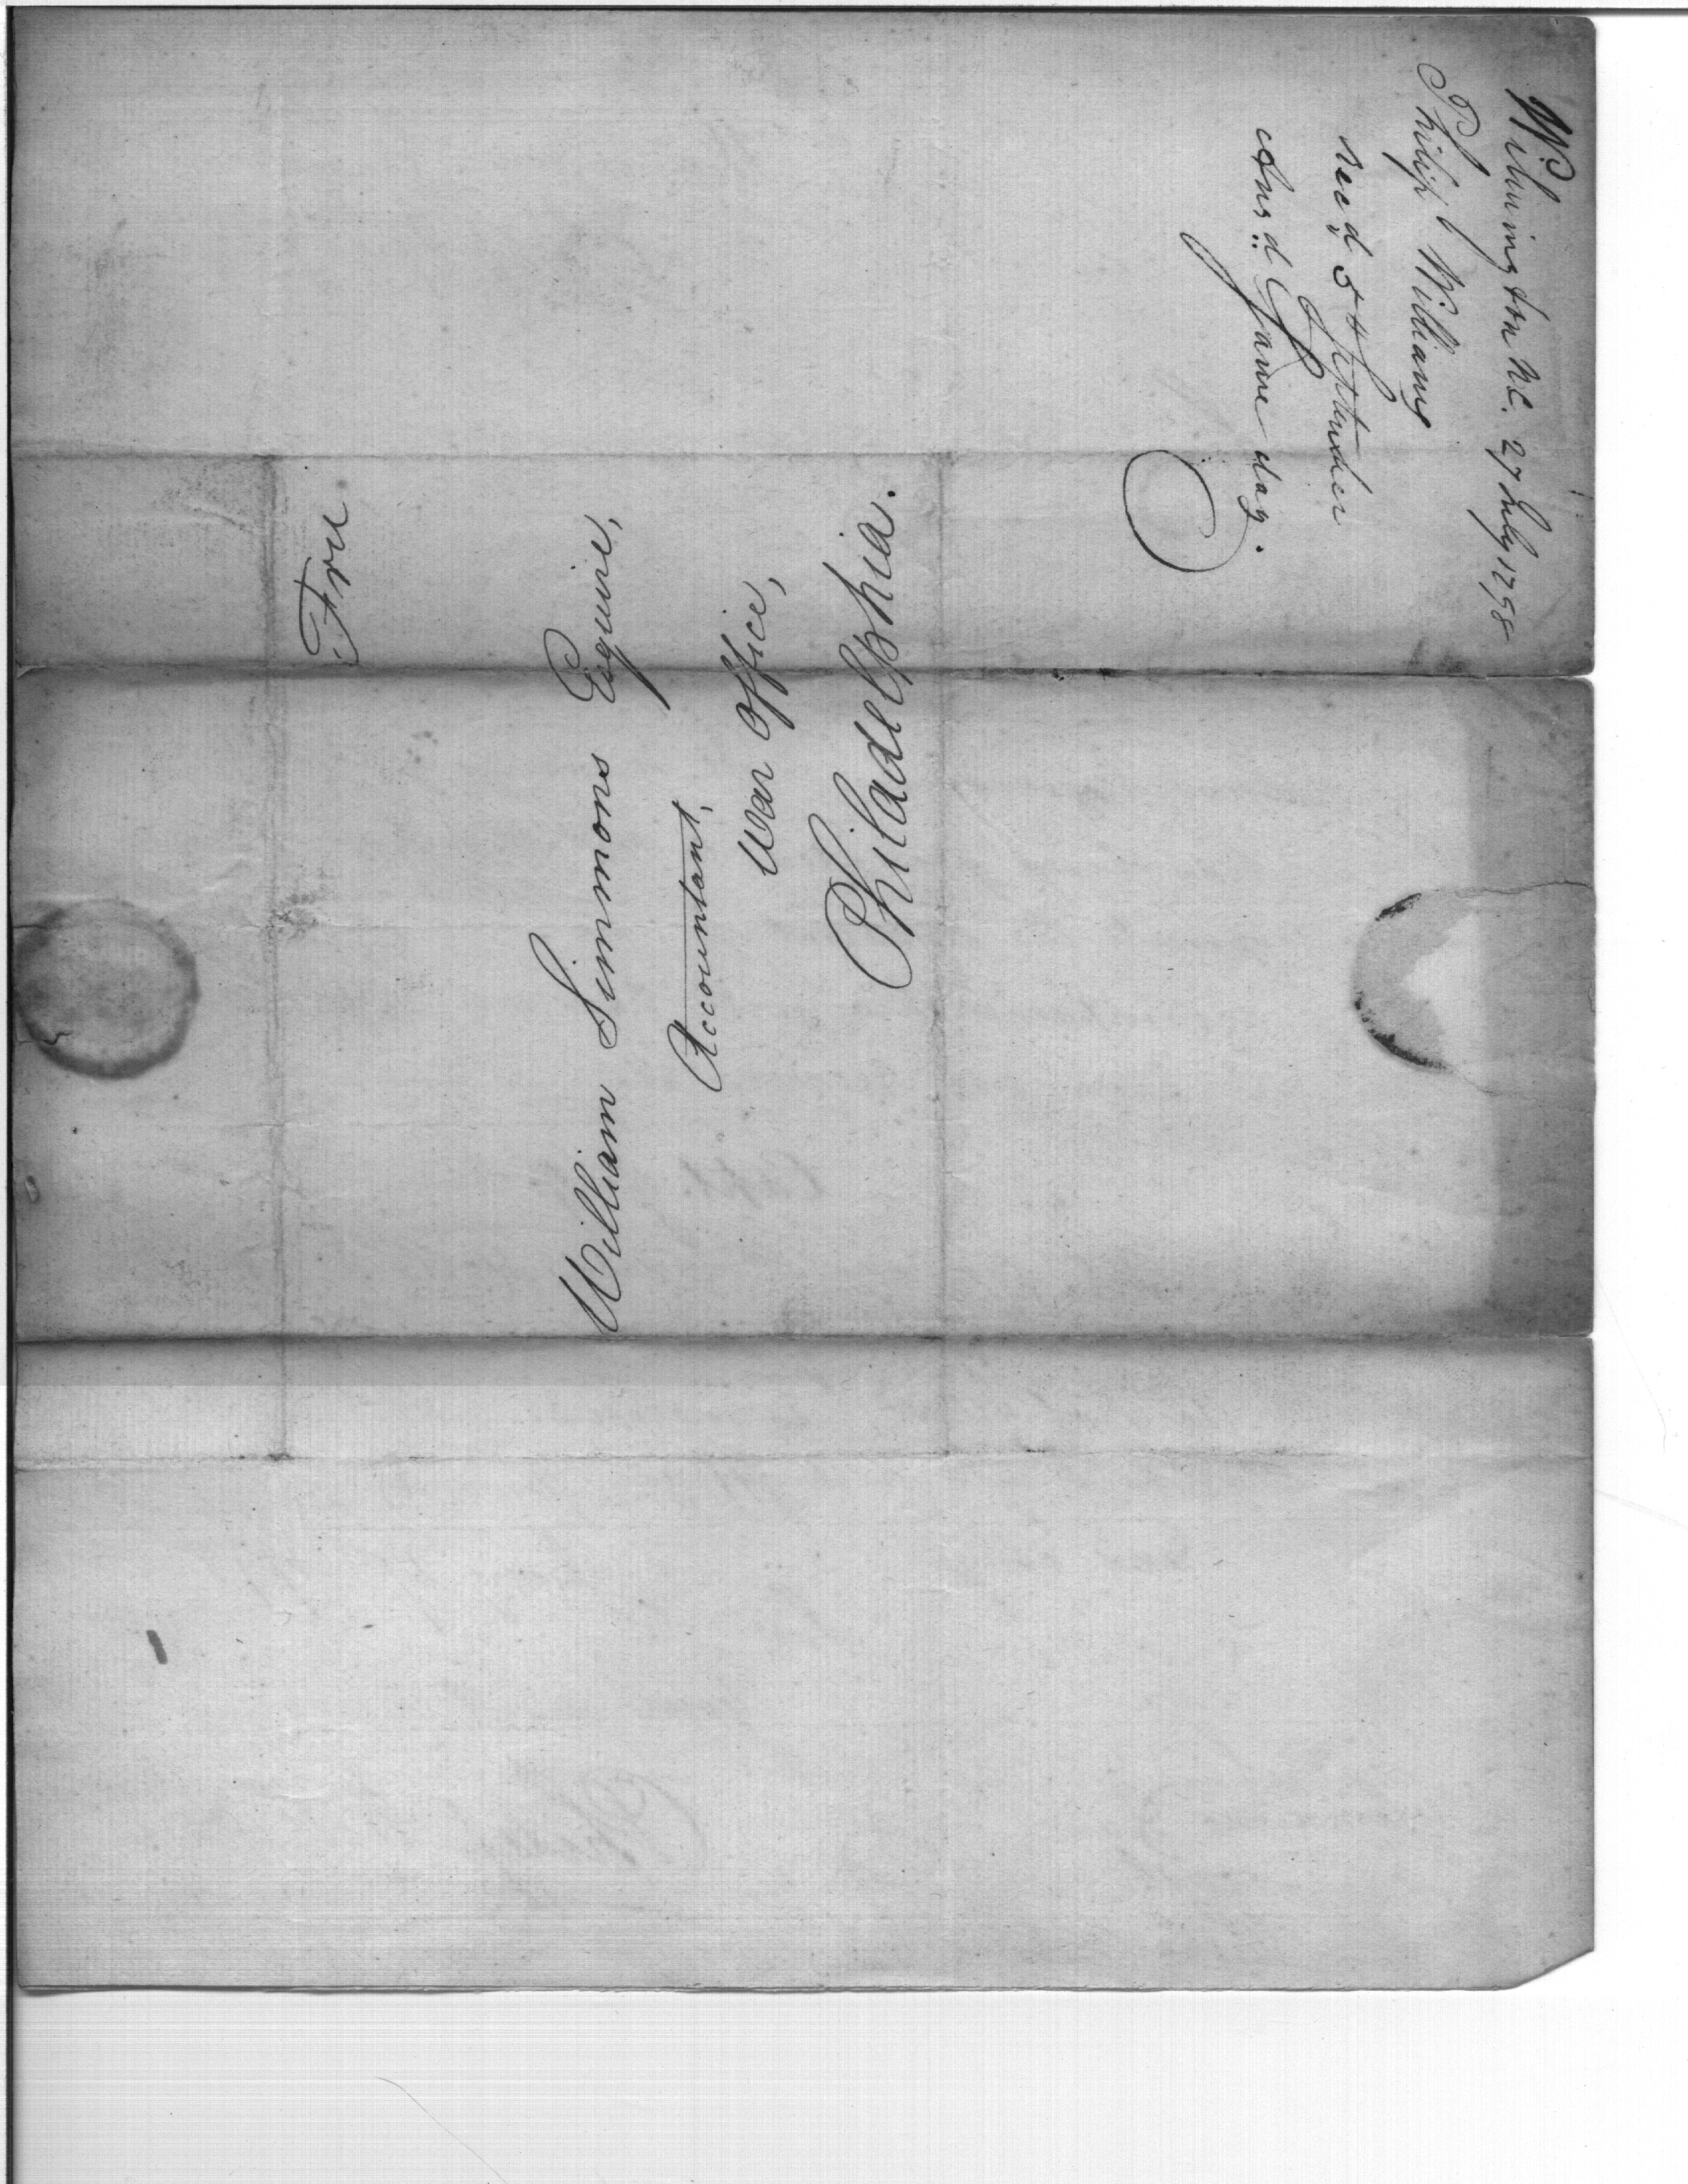 Wilmington N.C. 27 July 1798
Philip Williams
rec.d 5 September
Ans.d Same day.
Free
William Simmons Esquire,
Accountant,
War Office,
Philadelphia.